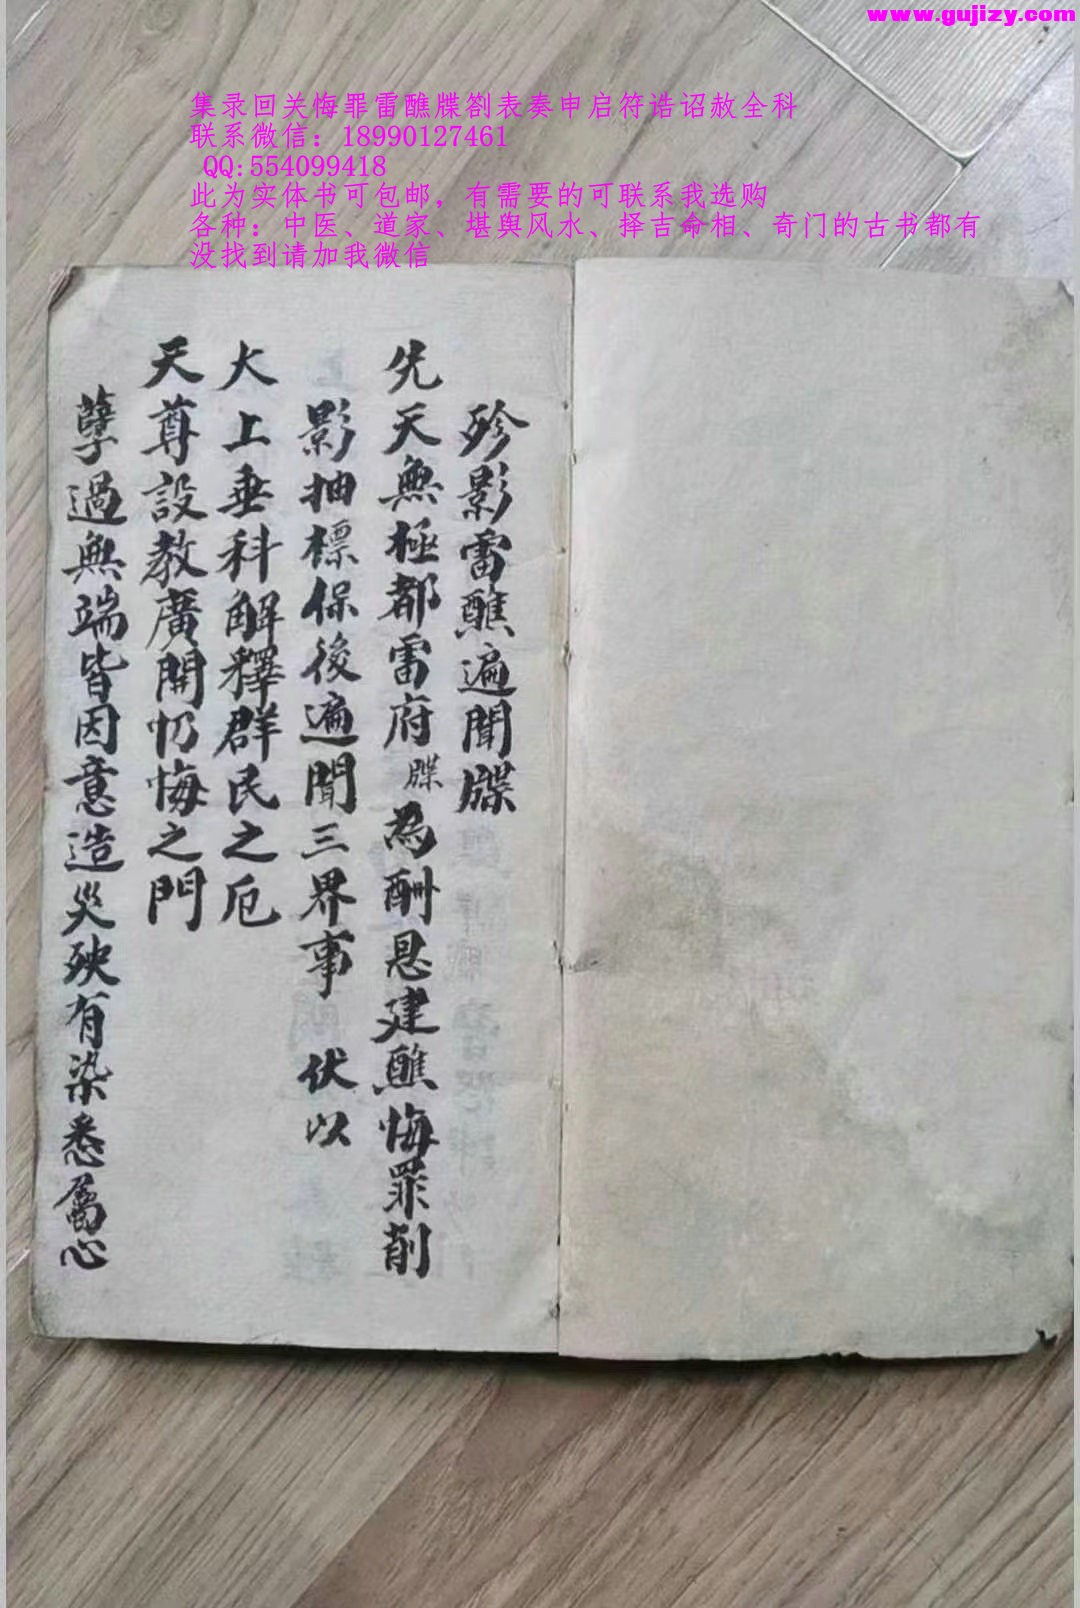 www.gujizy.com
集录回关悔罪雷醮牒劄表奏申启符诰诏赦全科
联系微信：18990127461
QQ:554099418
此为实体书可包邮，有需要的可联系我选购
各种：中医、道家、堪舆风水、择吉命相、奇门的古书都有
没找到请加我微信
殄影雷醮遍聞牒
先天無極都雷府牒為酬恩建醮悔罪削
影抽標保後遍聞三界事 伏以
大上垂科解釋群民之厄
天尊設教廣開忏悔之門
孽過無端皆因意造災殃有染悉屬心